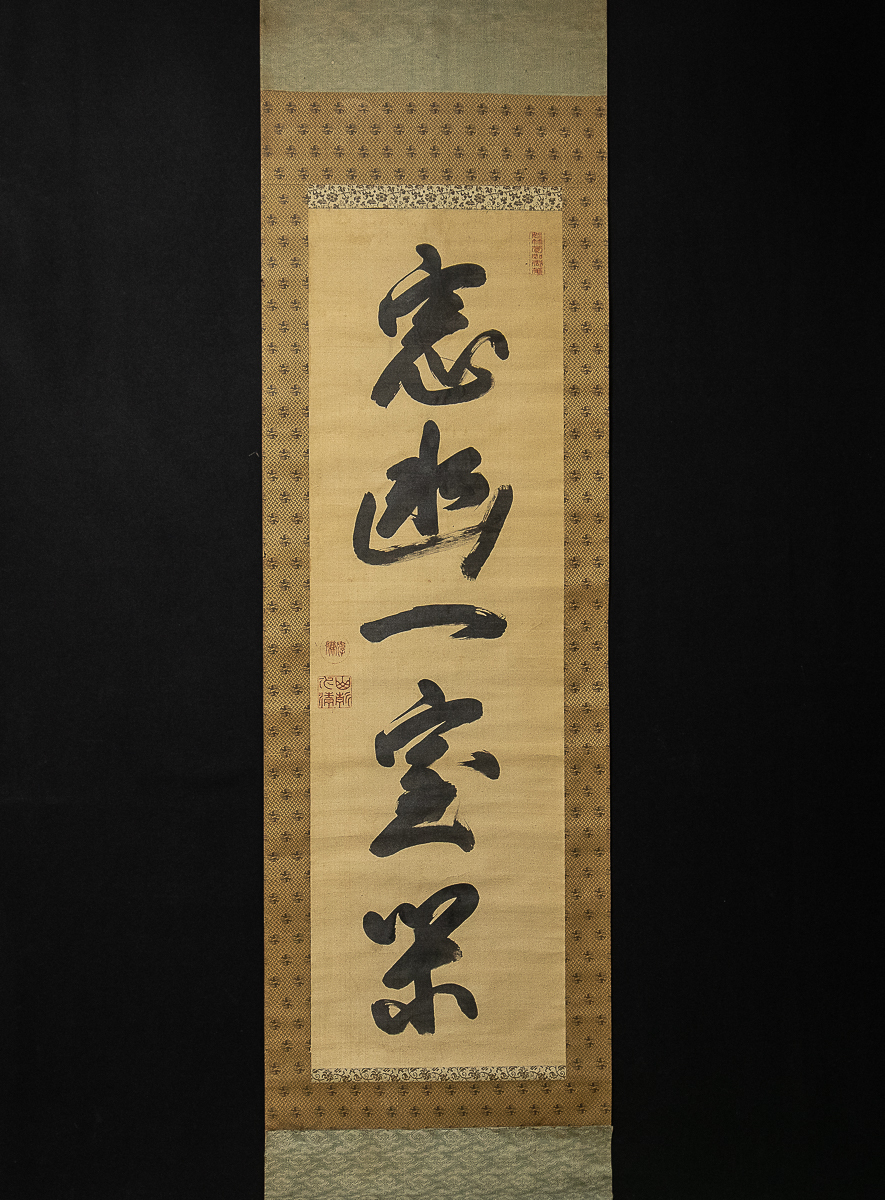 窓幽一室閑